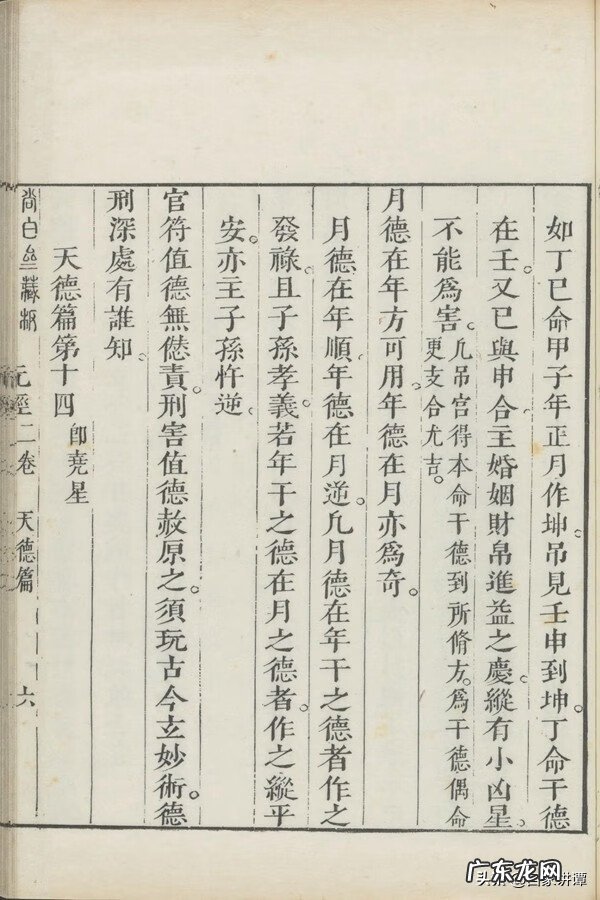 如丁巳命甲子年正月作坤吊見壬申到坤丁命干德
在壬又巳與申合主婚姻財帛進益之慶縱有小凶星
不能爲害凡吊宮得本命干德到所脩方爲干德偶命
更支合尤吉
月德在年方可用年德在月亦爲奇
月德在年順年德在月逆凡月德在年干之德者作之
發祿且子孫孝義若年干之德在月之德者作之縱平
安亦主子孫忤逆
官符值德無愆責刑害值德赦原之須玩古今玄妙術德
刑深處有誰知
天德篇第十四 卽堯星
尚白齋藏板 元經二卷 天德篇 六
广东龙网
头条 @百家讲谭